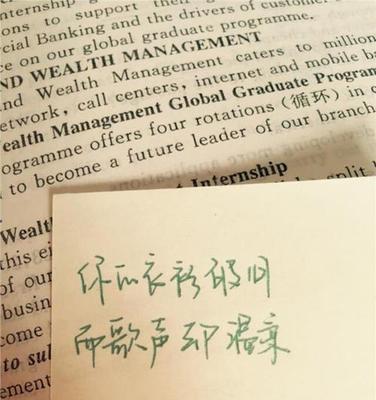 ons to support the
cial Banking and the drivers of customer
ce on our global graduate programme.
ND WEALTH MANAGEMENT
nd Wealth Management caters to million
etwork, call centers, internet and mobile ba
ealth Management Global Graduate Progra
ogramme offers four rotations (循环) in c
to become a future leader of our branch
Wealth
t Internship
this ei
split
of our
busin
come
to sul
ement
你的衣衫破旧
而歌声却温柔